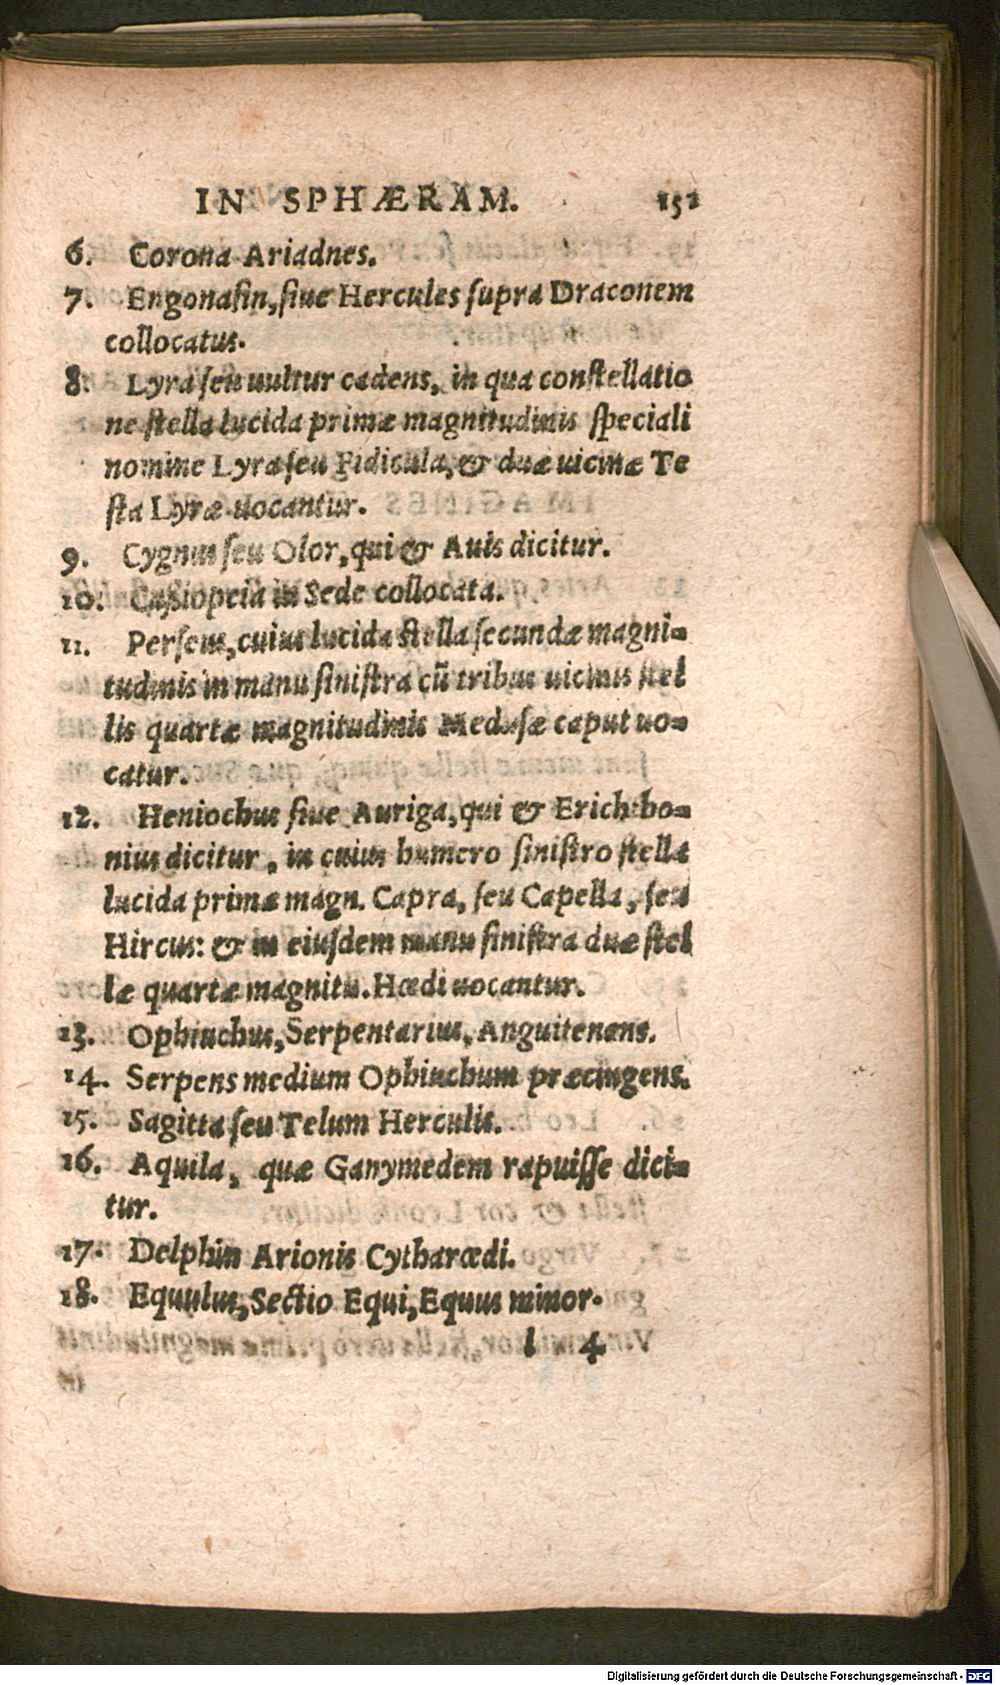 IN SPHÆRAM. 152
6. Corona Ariadnes.
7. Engonasin, siue Hercules supra Draconem
collocatus.
8. Lyra seu uultur cadens, in qua constellatio
ne stella lucida primæ magnitudinis speciali
nomine Lyra seu Fidicula, & duæ uicinæ Te
sta Lyræ uocantur.
9. Cygnus seu Olor, qui & Auis dicitur.
10. Cassiopeia in Sede collocata.
11. Perseus, cuius lucida stella secundæ magni-
tudinis in manu sinistra cũ tribus uicinis stel
lis quartæ magnitudinis Medusæ caput uo-
catur.
12. Heniochus siue Auriga, qui & Erichtho-
nius dicitur, in cuius humero sinistro stella
lucida primæ magn. Capra, seu Capella, seu
Hircus: & in eiusdem manu sinistra duæ stel
læ quartæ magnitu. Hœdi uocantur.
13. Ophiuchus, Serpentarius, Anguitenens.
14. Serpens medium Ophiuchum præcingens.
15. Sagitta seu Telum Herculis.
16. Aquila, quæ Ganymedem rapuisse dici-
tur.
17. Delphin Arionis Cytharœdi.
18. Equulus, Sectio Equi, Equus minor.
l 4
Digitalisierung gefördert durch die Deutsche Forschungsgemeinschaft - DFG